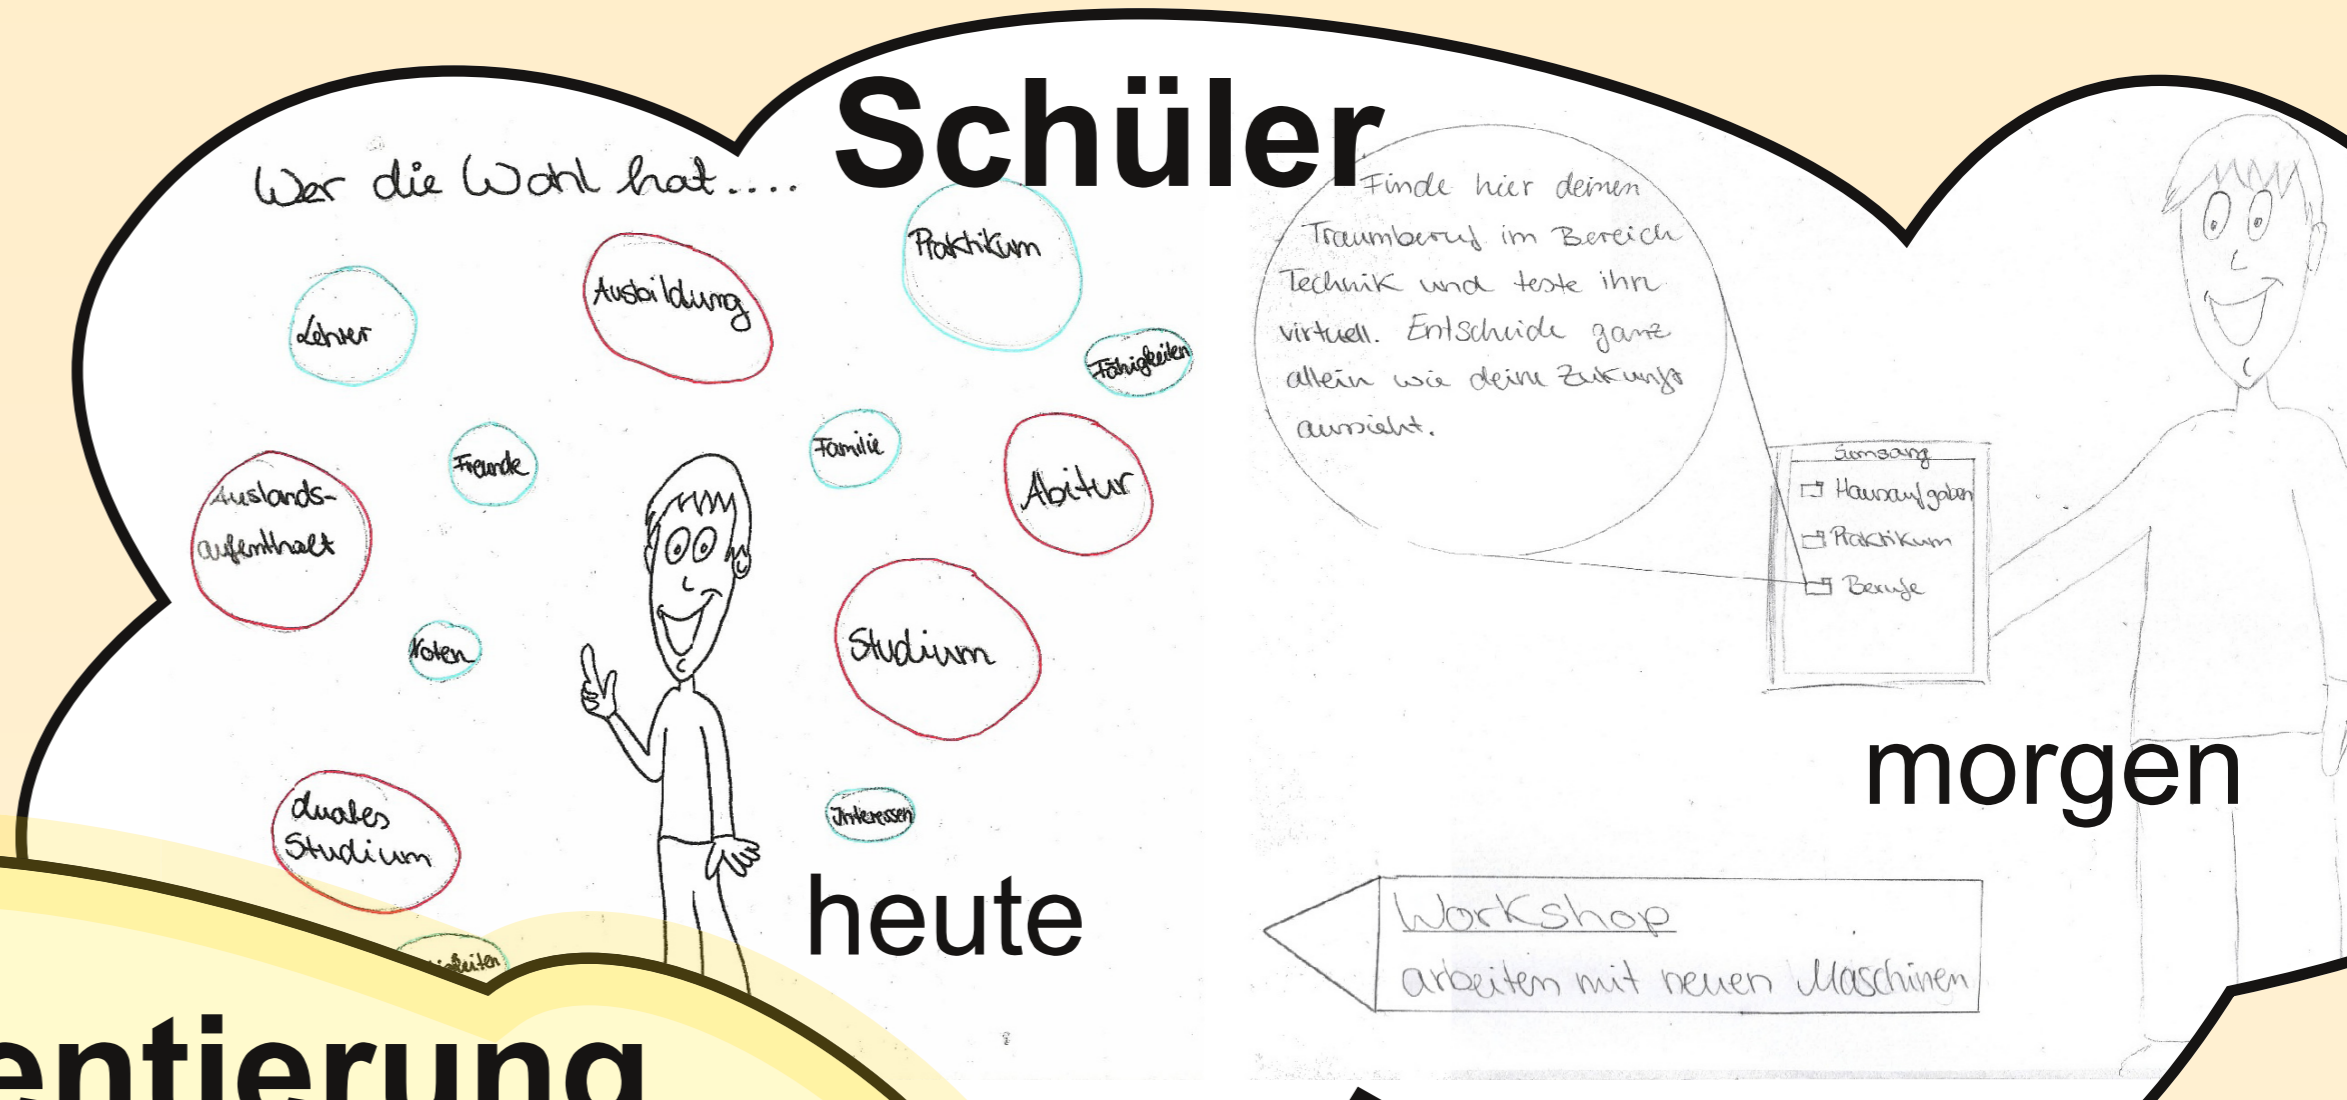 Schüler
Wer die Wahl hat....
Lehrer
Ausbildung
Praktikum
Fähigkeiten
Freunde
Familie
Abitur
Auslands-
aufenthalt
Noten
Studium
duales
Studium
Interessen
heute
Finde hier deinen
Traumberuf im Bereich
Technik und teste ihn
virtuell. Entscheide ganz
allein wie deine Zukunft
aussieht.
Samsang
Hausaufgaben
Praktikum
Berufe
morgen
Workshop
arbeiten mit neuen Maschinen
entierung